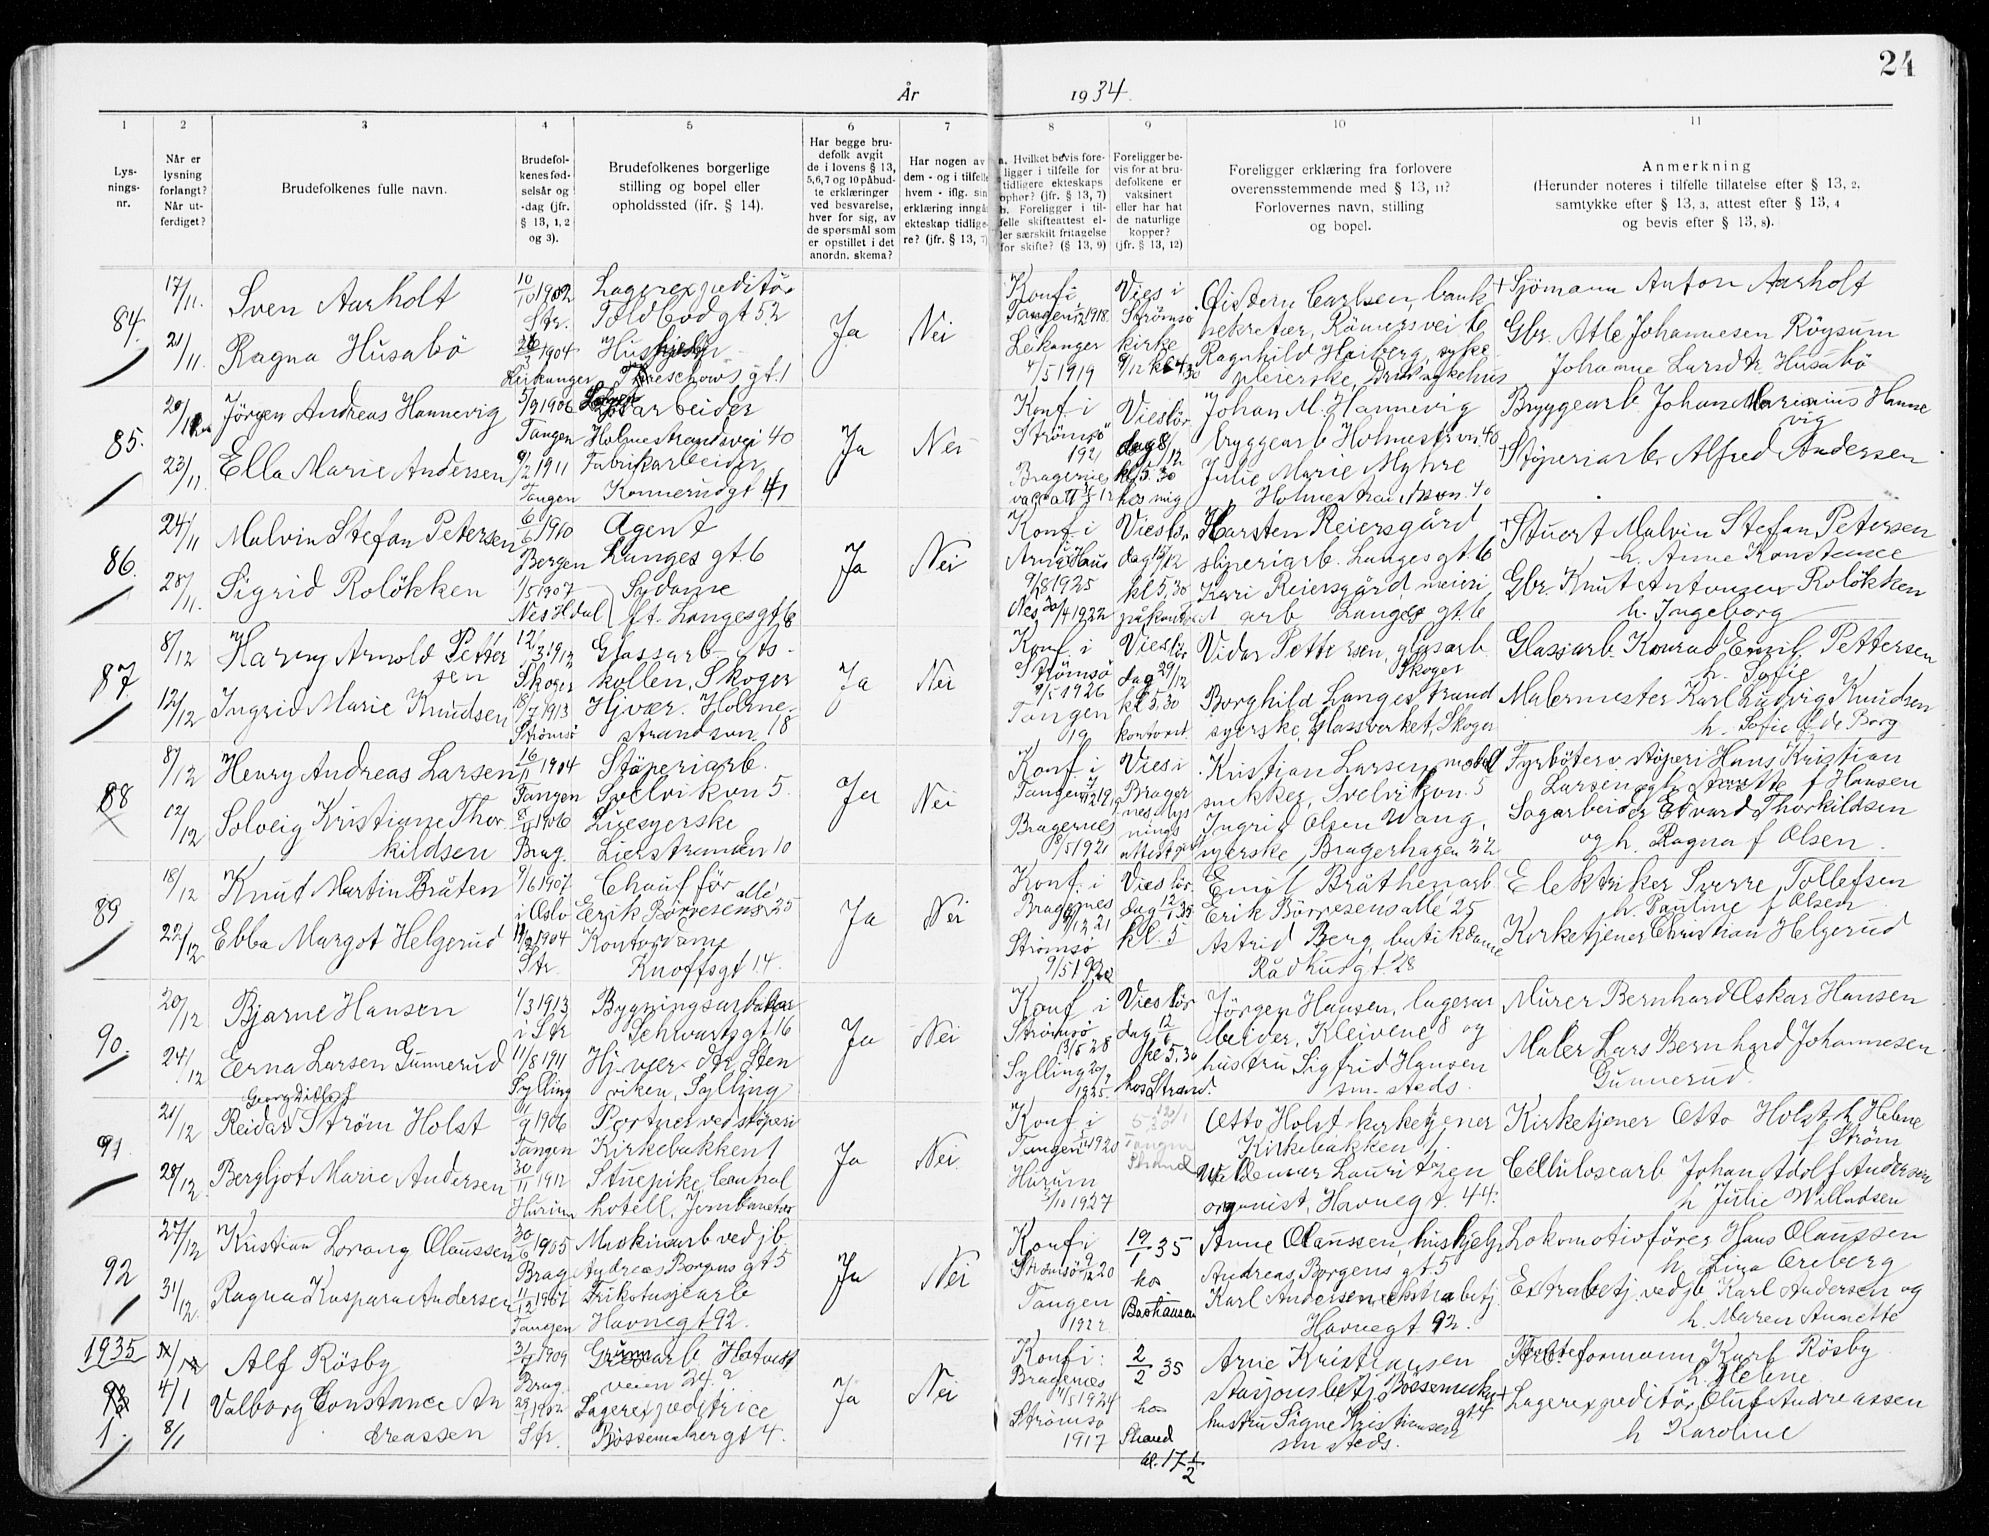 24
År 1934.
1 2 3 4 5 6 7 8 9 10 11
Lys-
nings-
nr.
Når er
lysning
forlangt?
Når ut-
ferdiget?
Brudefolkenes fulle navn.
Brudefol-
kenes fød-
selsår og
-dag (jfr.
§ 13, 1, 2
og 3).
Brudefolkenes borgerlige
stilling og bopel eller
opholdssted (jfr. § 14).
Har begge bru-
defolk avgit
de i lovens § 13,
5, 6, 7 og 10 påbud-
te erklæringer
ved besvarelse,
hver for sig, av
de spørsmål som
er opstillet i det
anordn. skema?
Har nogen av
dem - og i tilfelle
hvem - iflg. sin
erklæring inngå
ekteskap tidlige-
re? (jfr. § 13, 7)
a. Hvilket bevis fore-
ligger i tilfelle for
tidligere ekteskaps
ophør? (jfr. § 13, 7)
b. Foreligger i til-
felle skifteattest el-
ler særskilt fritagelse
for skifte? (§ 13, 9)
Foreligger be-
vis for at bru-
defolkene er
vaksinert
eller har hat
de naturlige
kopper?
(jfr. § 13, 12)
Foreligger erklæring fra forlovere
overensstemmende med § 13, 11?
Forlovernes navn, stilling
og bopel.
Anmerkning
(Herunder noteres i tilfelle tillatelse efter § 13, 2,
samtykke efter § 13, 3, attest efter § 13, 4
og bevis efter § 13, 8).
84.
17/11.
21/11.
Sven Aarholt
Ragna Husabö
10/10 1902
Str.
1904
Leikanger
Lagerexpeditör
Toldbodgt 52
Treschows gt. 1
Ja
Nei
Konf. i
Tangen 1918.
Leikanger
4/5 1919
Vies i
Strömsö
kirke
Öistein Carlsen, bank
sekretær, Römersvei 16
Ragnhild Heiberg, syke
pleierske, Dr. sykehus
+ Sjömann Anton Aarholt
Gbr. Atle Johannesen Röysum
Johanne Larsd h. Husabö
85.
20/11
23/11
Jörgen Andreas Hannevig
Ella Marie Andersen
5/9 1906
Tangen
9/2 1911
Tangen
arbeider
Holmestrandsvei 40
Fabrikarbeider
Konnerudgt 41
Ja
Nei
Konf. i
Strömsö
1921
Bragernes
Vies lör
dag 8/12
kl 5.30
hos mig
Johan M. Hannevig
bryggearb Holmestr.vn. 40
Julie Marie Myhre
Holmestrandsvn. 40
Bryggearb. Johan Marinius Hanne
vig
+ Støperiarb. Alfred Andersen
86.
24/11
28/11.
Malvin Stefan Petersen
Sigrid Rolökken
6/6 1910
Bergen
1/5 1907
Nes Hdal
Agent
Langes gt. 6
Sydame
ft. Langes gt. 6
Ja
Nei
Konf. i
Arna i Haus
9/8 1925
Nes 30/4 1922
Vies lör
dag 15/12
kl 5.30
på kontoret
Karsten Reiersgård
sliperiarb. Langes gt. 6
Kari Reiersgård meieri
arb Langes gt. 6
+ Stuert Malvin Stefan Petersen
h. Anne Konstance
Gbr. Knut Antonsen Rolökken
h. Ingeborg
87.
8/12
12/12
Harry Arnold Petter
sen
Ingrid Marie Knudsen
12/3 1912
Skoger
18/7 1913
Strömsö
Glassarb. Ås-
kollen, Skoger
Hj.vær. Holme-
strandsvn. 18
Ja
Nei
Konf. i
Strömsö
9/5 1926
Tangen
19
Vies lör
dag 29/12
kl 5.30
kontoret.
Vidar Pettersen, glasarb.
Skoger
Borghild Langestrand
syerske, Glassverket, Skoger
Glassarb. Konrad Emil Pettersen
h. Sofie
Malermester Karl Ludvig Knudsen
h. Sofie f. de Borg
88
8/12
12/12
Henry Andreas Larsen
Solveig Kristiane Thor
kildsen
16/11 1904
Tangen
1906
Brag.
Støperiarb.
Svelvikvn 5.
Livsyerske
Lierstranden 10
Ja
Nei
Konf. i
Tangen
Bragernes
8/5 1921
Vies i
Brager
nes lys
nings
attest
Kristian Larsen, mobel
snekker, Svelvikvn. 5
Ingrid Olsen Wang,
syerske, Bragerhagen 32
Fyrböter v. støperi Hans Kristian
Larsen og h. Anette f Hansen
Sagarbeider Edvard Thorkildsen
og h. Ragna f Olsen.
89
18/12
22/12
Knut Martin Bråten
Ebba Margot Helgerud
9/6 1907
i Oslo
1904
Str.
Chaufför
Erik Börresens allé 25
Kontordame
Knoffsgt 14.
Ja
Nei
Konf. i
Bragernes
Strömsö
Vies lör
dag 12/1 35
kl. 5
Emil Bråthen arb
Erik Börresens allé 25
Astrid Berg, butikdame
Rådhusgt. 28
Elektriker Sverre Tollefsen
h. Pauline f Olsen
Kirketjener Christian Helgerud
90.
20/12
24/12
Bjarne Hansen
Erna Larsen Gunnerud
1/3 1913
i Str
11/8 1911
Sylling
Bygningsarbeider
Schwartsgt 16
Hj. vær. Sten
viken, Sylling
Ja
Nei
Konf i
Strömsö
Sylling
1925.
Vies lör
dag 12/
kl 5.30
hos Strand.
Jörgen Hansen, lagerar
beider, Kleivene 8 og
hustru Sigfrid Hansen
sm. steds.
Murer Bernhard Oskar Hansen
Maler Lars Bernhard Johannesen
Gunnerud.
91.
21/12
28/12
Georg Ditlef
Reidar Ström Holst
Bergljot Marie Andersen
1906
Tangen
30/11 1912
Hurum
Portner ved støperi
Kirkebakken 1
Stuepike Central
hotell, Jernbanetor
Ja
Nei
Konf. i
Tangen 1920
Hurum
1927
Tangen
Strand
Otto Holst kirketjener
Kirkebakken 1.
Waldemar Lauritzen
organist, Havnegt. 44.
Kirketjener Otto Holst h Helene
f Ström
Cellulosearb Johan Adolf Andersen
h Julie Willadsen
92
27/12
31/12.
Kristian Lorang Olaussen
Ragna Kaspara Andersen
30/6 1905
Brag
11/12 1907
Tangen
Maskinarb ved jb
Andreas Borgens gt 5
Trikotasjearb
Havnegt 92.
Ja
Nei
Konf i
Strömsö
Tangen
1922
19/1 35
hos
Andreas Borgens gt 5
Anne Olaussen, hushjelp
Karl Andersen, extrabetj.
Havnegt 92.
Lokomotivförer Hans Olaussen
h. Lina Öreberg
Extrabetj. ved jb Karl Andersen og
h. Maren Annette
1935
1.
4/1
8/1
Alf Rösby
Valborg Constance An
dreassen
1909
Brag.
1902
Str.
Hotvedt
veien 24.
Lagerexpeditrice
Bössemakergt 4.
Ja
Nei
Konf i:
Bragernes
11/5 1924
Strömsö
1917
2/2 35
hos
Strand
kl. 17 1/2
Arne Kristiansen
stasjonsbetj Bössemaker
gt 4
hustru Signe Kristiansen
sm steds.
formann Karl Rösby
h Helene
+ Lagerexpeditör Oluf Andreassen
h Karoline